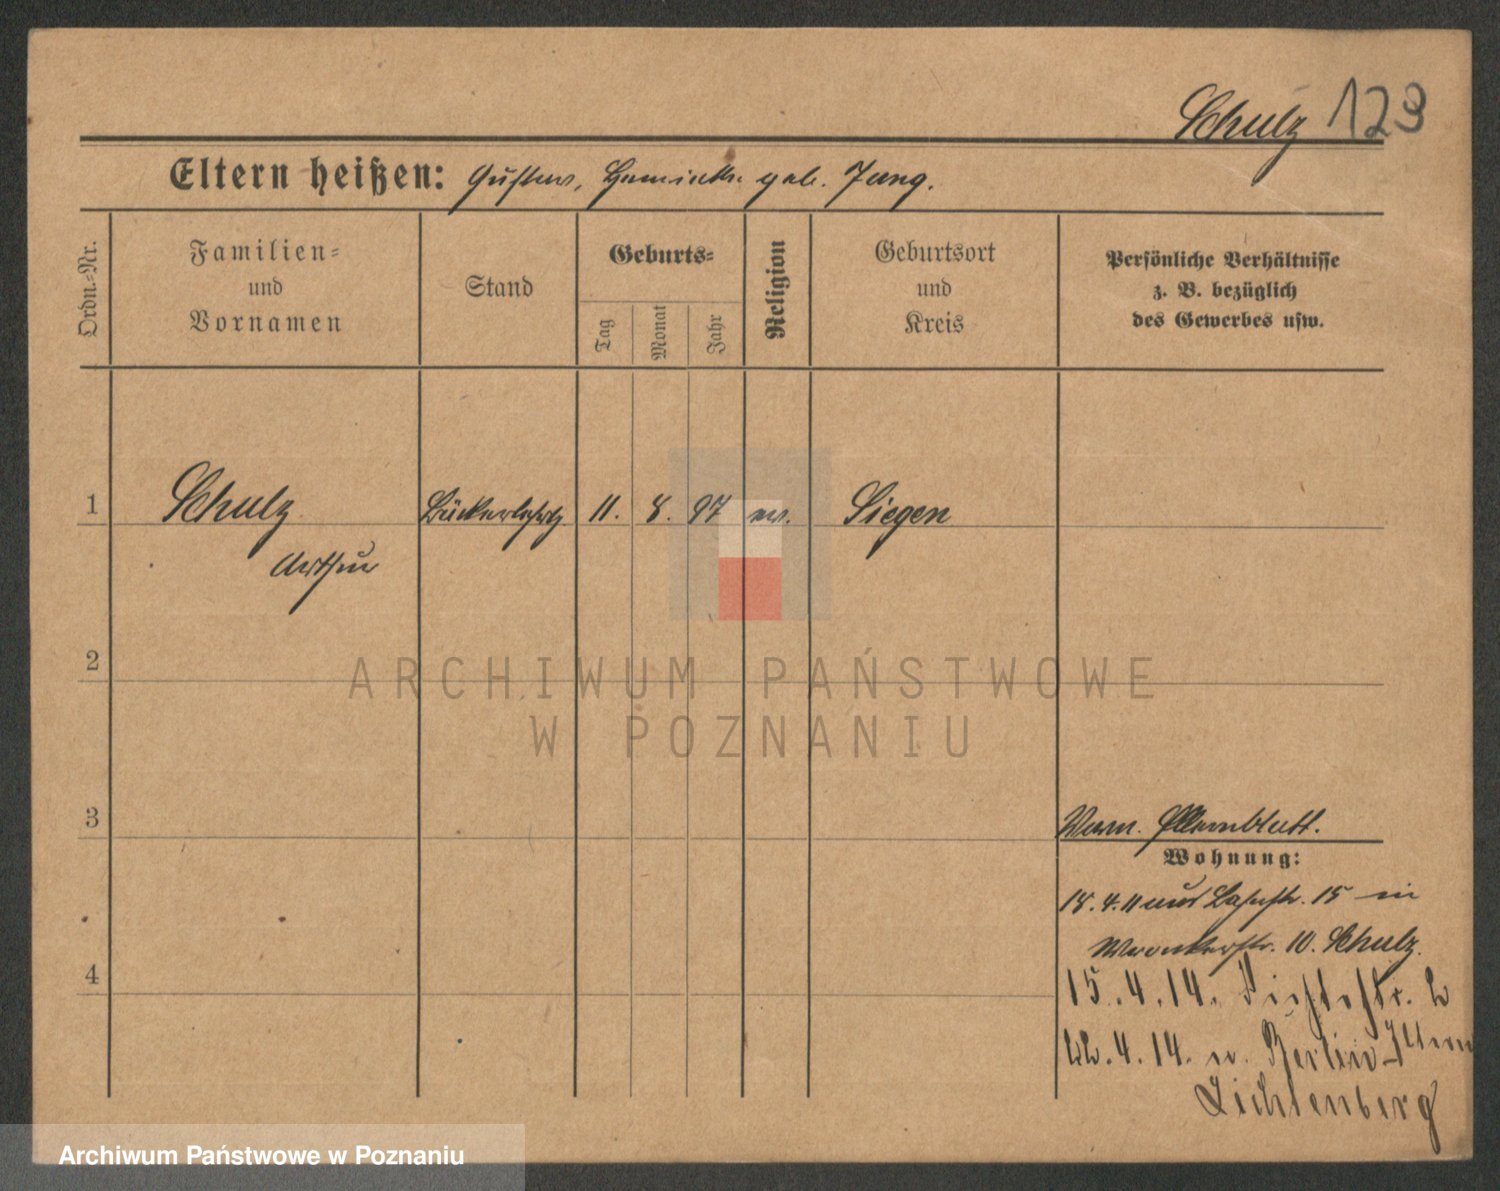 Schulz 123
Eltern heißen: Gustav, Henriette geb. Jung.
Ordn.-Nr.
Familien-
und
Vornamen
Stand
Geburts-
Tag
Monat
Jahr
Religion
Geburtsort
und
Kreis
Persönliche Verhältnisse
z. B. bezüglich
des Gewerbes usw.
1 Schulz Bäckerlehrlg 11. 8. 97 ev. Siegen
Arthur
2
ARCHIWUM PAŃSTWOWE
W POZNANIU
3
Wohnung:
18.4.11 aus 15 in
Wronkerstr. 10. Schulz.
4
15.4.14. Fichtestr. 2
22.4.14. n. Berlin
Lichtenberg
Archiwum Państwowe w Poznaniu